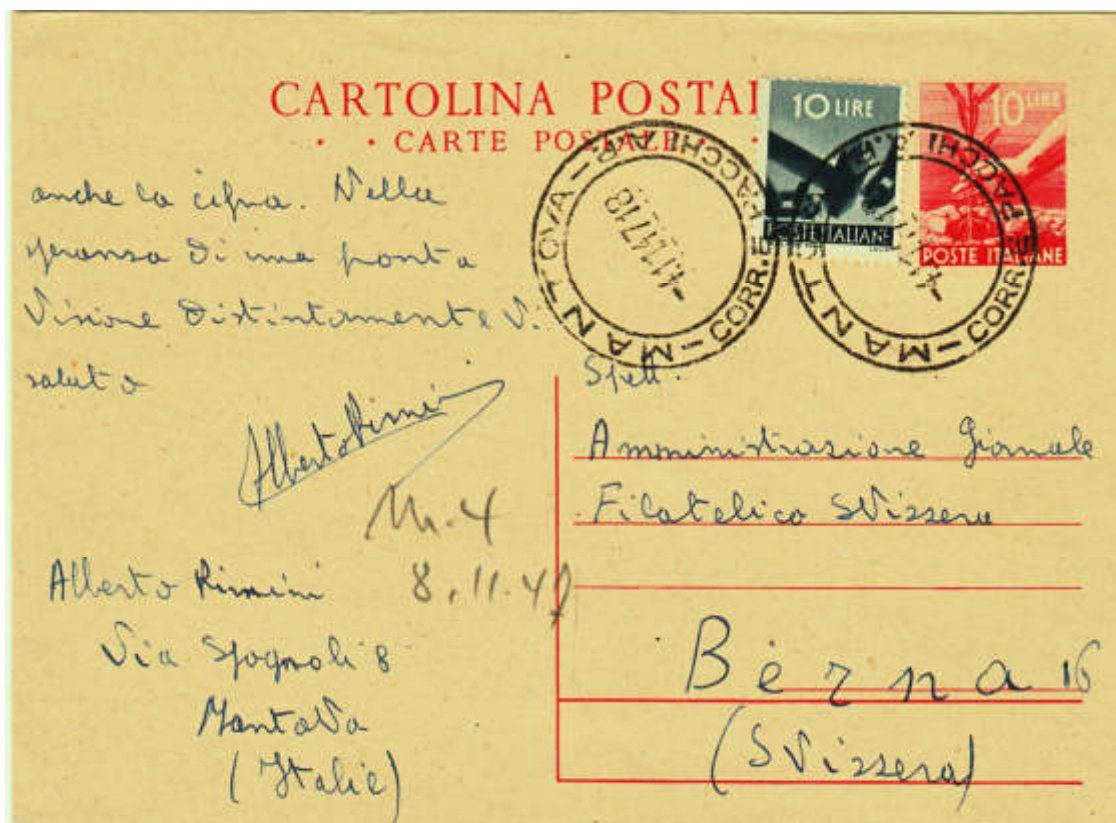 CARTOLINA POSTAL
· · CARTE POSTALE · ·
10 LIRE
POSTE ITALIANE
10 LIRE
POSTE ITALIANE
MANTOVA - CORR. E PACCHI A.P. -
-4.11.47.18
MANTOVA - CORR. E PACCHI A.P. -
-4.11.47.18
anche la cifra. Nella
speranza di una pronta
Visione distintamente Vi
saluto
Alberto Rimini
8.11.47
Alberto Rimini
Via Spagnoli 8
Mantova
(Italie)
Spett.
Amministrazione Giornale
Filatelico Svizzera
Berna 16
(Svizzera)